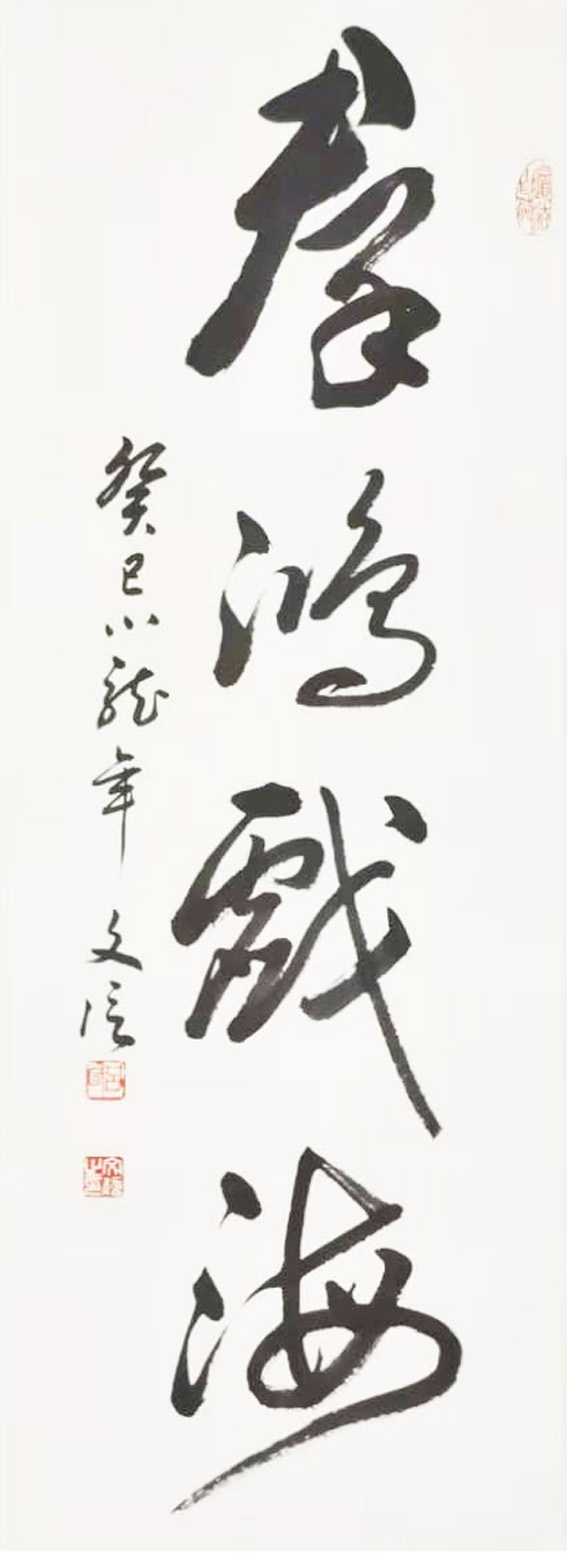 羣鴻戲海
癸巳小龍年 文信